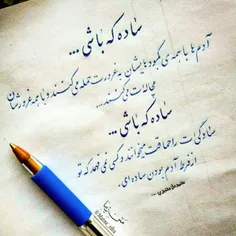 ساده که باشی ...
آدم ها با همه ی کمبودهایشان به غرورت حمله می کنند و با همه غرورشان
مچاله ات می کنند ...
ساده که باشی ...
سادگی ات را حماقت میخوانند و کسی نمی فهمد که تو
از فرط آدم بودن ساده ای.